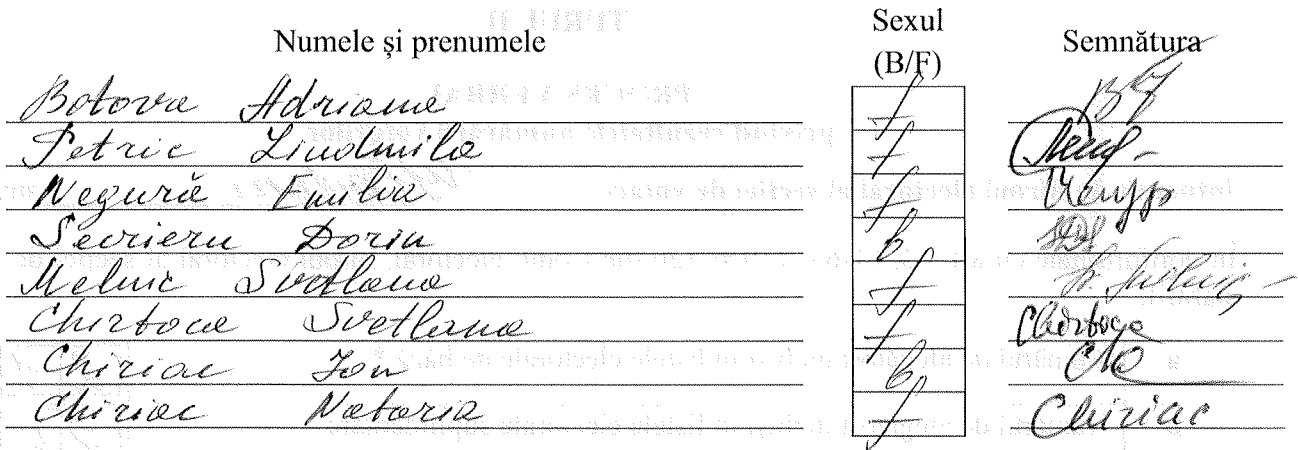 Numele și prenumele Sexul (B/F) Semnătura
Botova Adriana f
Petric Liudmila f
Negură Emilia f
Secrieru Dorin b
Melnic Svetlana f
Chirtoca Svetlana f Chirtoca
Chiriac Ion b
Chiriac Nataria f Chiriac